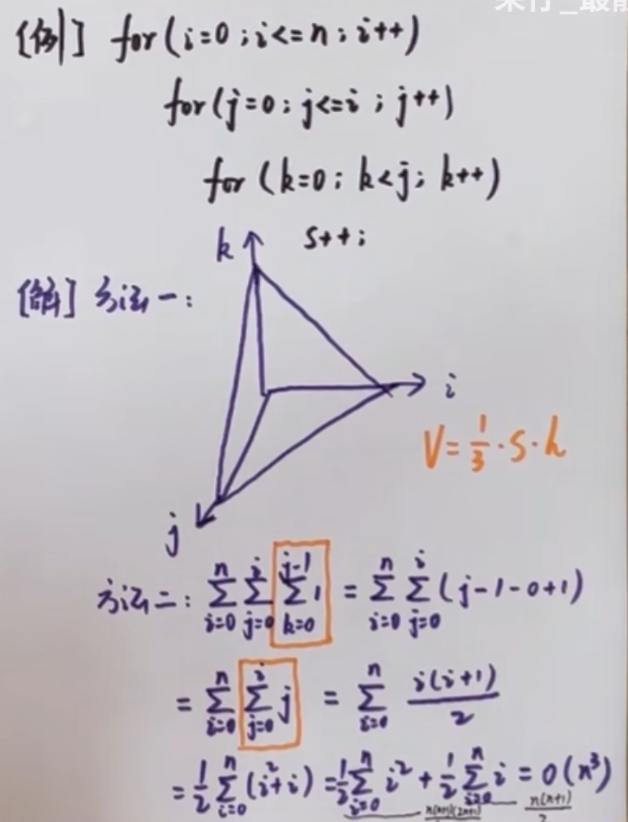 [例] for(i=0;i<=n;i++)
for(j=0;j<=i;j++)
for(k=0;k<j;k++)
s++;
k
[解] 方法一:
i
V=\frac{1}{3}·S·h
j
方法二: \sum_{i=0}^{n}\sum_{j=0}^{i}\sum_{k=0}^{j-1}1 = \sum_{i=0}^{n}\sum_{j=0}^{i}(j-1-0+1)
= \sum_{i=0}^{n}\sum_{j=0}^{i}j = \sum_{i=0}^{n}\frac{i(i+1)}{2}
= \frac{1}{2}\sum_{i=0}^{n}(i^2+i) = \frac{1}{2}\sum_{i=0}^{n}i^2 + \frac{1}{2}\sum_{i=0}^{n}i = O(n^3)
n(n+1)(2n+1) \frac{n(n+1)}{2}